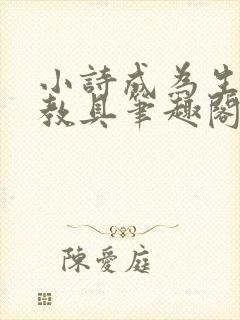 小詩成為生
教具筆趣閣
陳愛庭